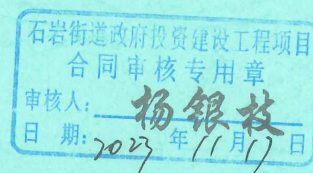 石岩街道政府投资建设工程项目
合同审核专用章
审核人：杨银枝
日期：2023年11月17日